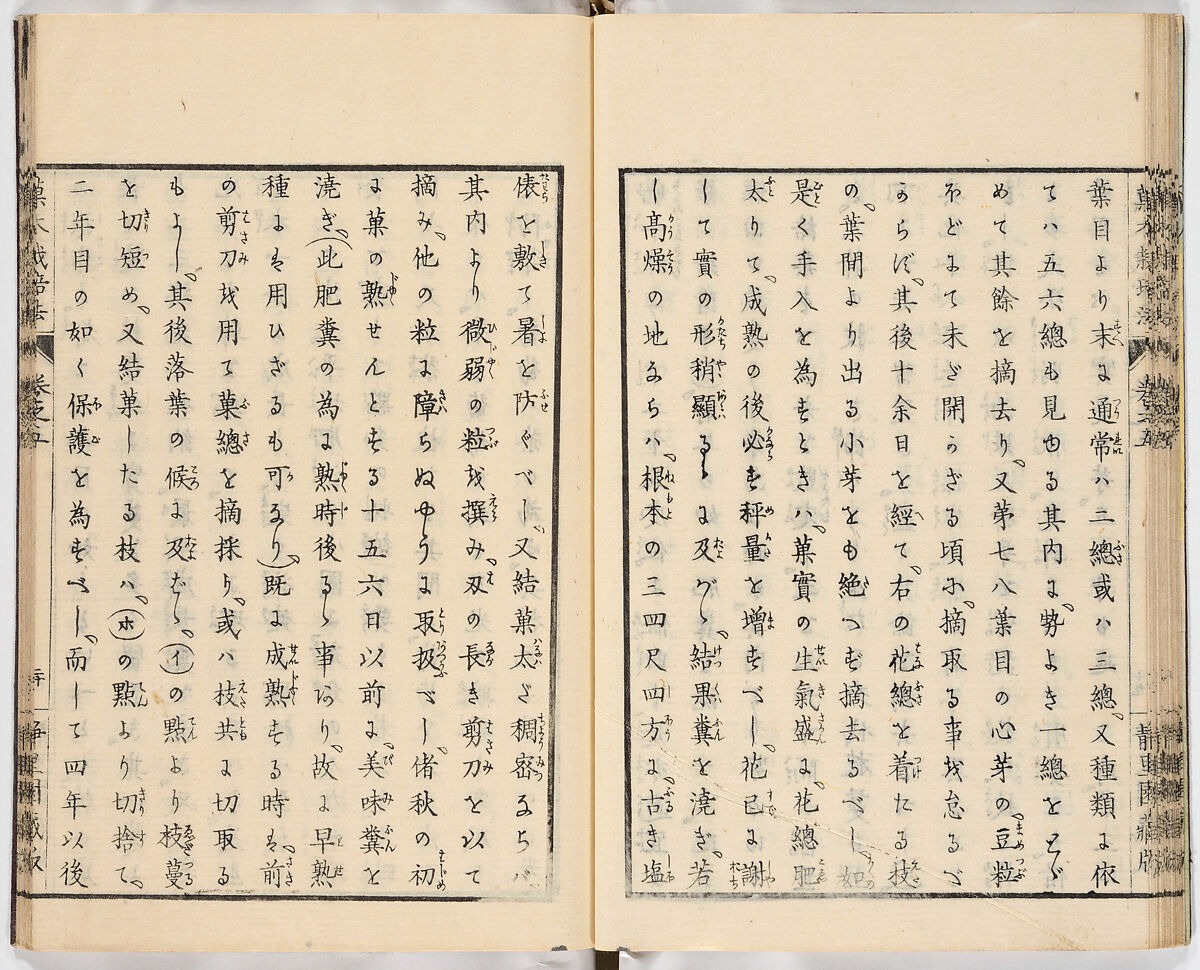 葉目より末に通常ハ二總或ハ三總、又種類に依
てハ五六總も見ゆる其内に、勢よき一總をとゞ
めて其餘を摘去り、又第七八葉目の心芽の豆粒
ほどにて未ざ開かざる頃に、摘取る事を怠るべ
からず、其後十余日を經て、右の花總を着たる枝
の、葉間より出る小芽をも絶へず摘去るべし、如
是く手入を為すときハ、菓實の生氣盛に、花總肥
太りて、成熟の後必す秤量を増すべし、花已に謝
して實の形稍顯るゝに及バゝ、結果糞を澆ぎ、若
し高燥の地ならハ、根本の三四尺四方に、古き塩
俵を敷て暑を防ぐべし、又結菓太ざ稠密ならバ
其内より微弱の粒を撰み、刄の長き剪刀を以て
摘み、他の粒に障らぬやうに取扱べし、偖秋の初
に菓の熟せんとする十五六日以前に、美味糞を
澆ぎ、(此肥糞の為に熟時後るゝ事あり、故に早熟
種にハ用ひざるも可なり、)既に成熟する時ハ、前
の剪刀を用て菓總を摘採り、或ハ枝共に切取る
もよし、其後落葉の候に及バゝ、イの點より枝蔓
を切短め、又結菓したる枝ハ、ホの點より切捨て、
二年目の如く保護を為すべし、而して四年以後
卷之五